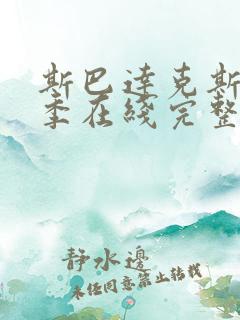 斯巴達克斯
季在綫完整
靜水邊
未任同意禁止轉載